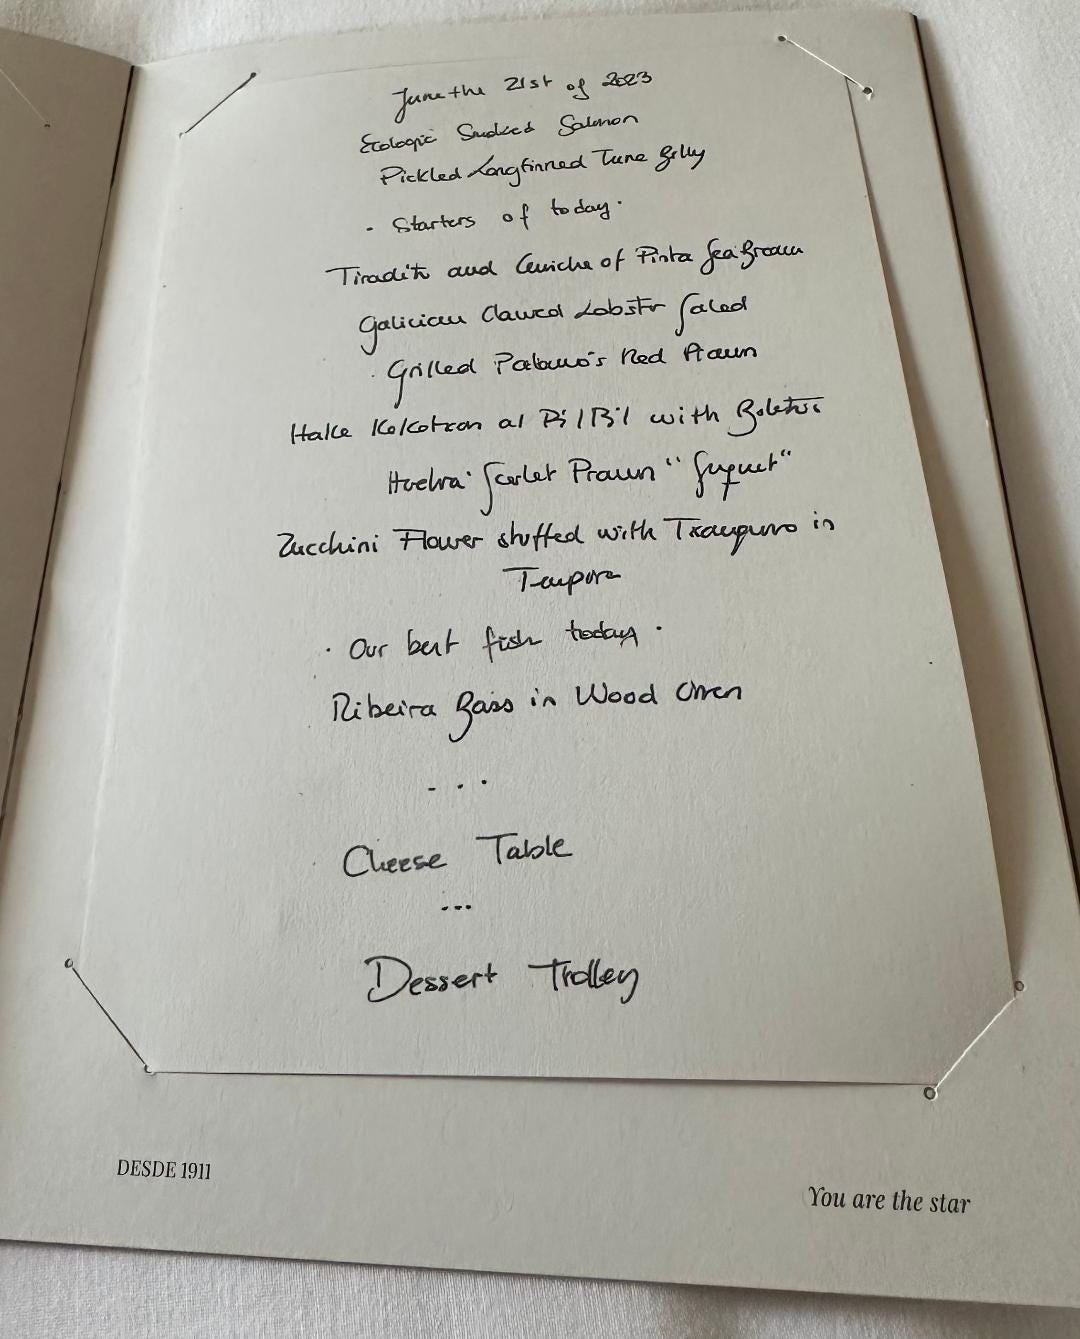 June the 21st of 2023
Ecologic Smoked Salmon
Pickled Longfinned Tuna Belly
· Starters of today ·
Tiradito and Ceviche of Pinta Sea Bream
Galician Clawed Lobster Salad
· Grilled Palamo's Red Prawn
Hake Kokotxan al Pil Bil with Boletus
Huelva' Scarlet Prawn "Suquet"
Zucchini Flower stuffed with Txangurro in
Tempura
· Our best fish today ·
Ribeira Bass in Wood Oven
...
Cheese Table
...
Dessert Trolley
DESDE 1911
You are the star